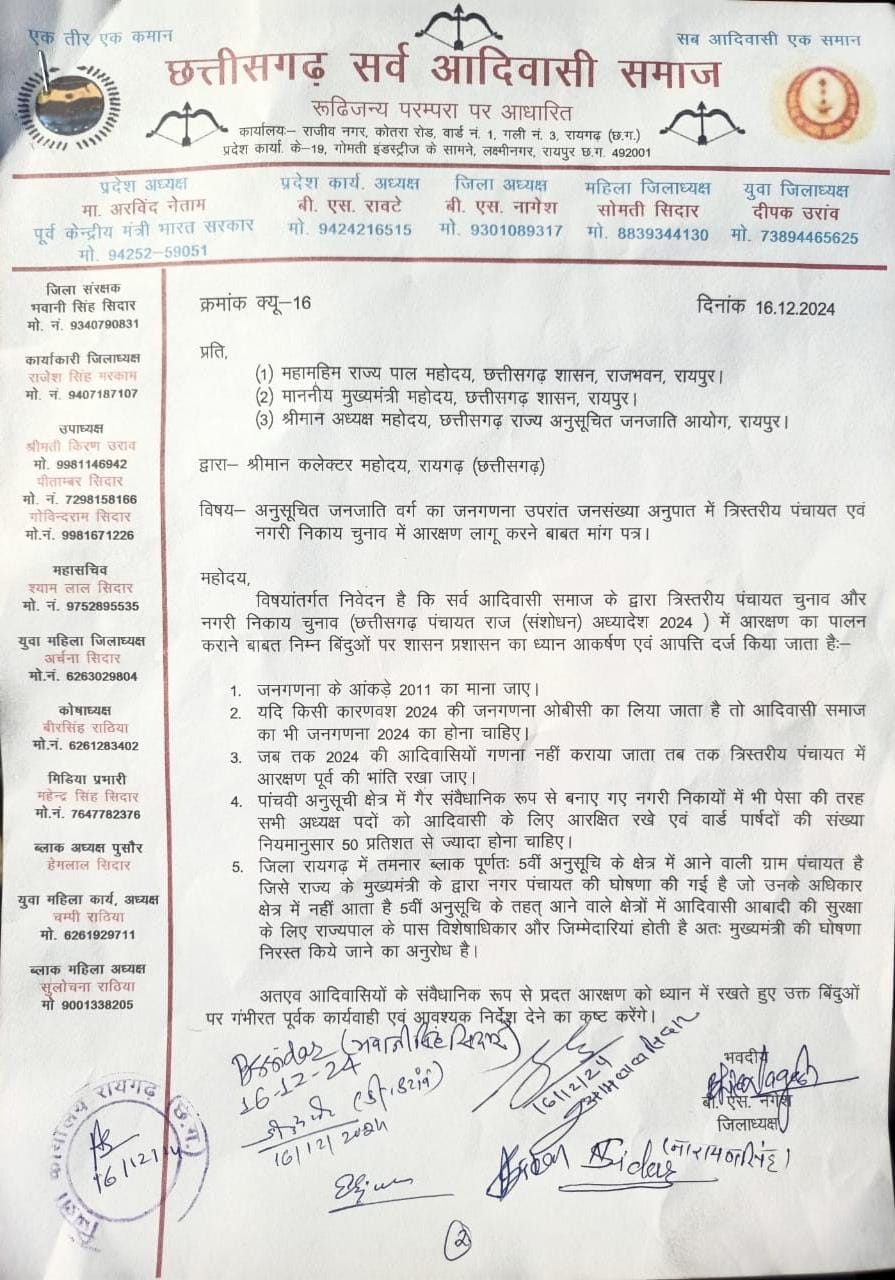 एक तीर एक कमान
सब आदिवासी एक समान
छत्तीसगढ़ सर्व आदिवासी समाज
रूढिजन्य परम्परा पर आधारित
कार्यालयः– राजीव नगर, कोतरा रोड, वार्ड नं. 1, गली नं. 3, रायगढ़ (छ.ग.)
प्रदेश कार्या. के–19, गोमती इंडस्ट्रीज के सामने, लक्ष्मीनगर, रायपुर छ.ग. 492001
प्रदेश अध्यक्ष
मा. अरविंद नेताम
पूर्व केन्द्रीय मंत्री भारत सरकार
मो. 94252–59051
प्रदेश कार्य. अध्यक्ष
बी. एस. रावटे
मो. 9424216515
जिला अध्यक्ष
बी. एस. नागेश
मो. 9301089317
महिला जिलाध्यक्ष
सोमती सिदार
मो. 8839344130
युवा जिलाध्यक्ष
दीपक उरांव
मो. 73894465625
जिला संरक्षक
भवानी सिंह सिदार
मो. नं. 9340790831
कार्याकारी जिलाध्यक्ष
राजेश सिंह मरकाम
मो. नं. 9407187107
उपाध्यक्ष
श्रीमती किरण उराव
मो. 9981146942
पीताम्बर सिदार
मो. नं. 7298158166
गोविन्दराम सिदार
मो.नं. 9981671226
महासचिव
श्याम लाल सिदार
मो. नं. 9752895535
युवा महिला जिलाध्यक्ष
अर्चना सिदार
मो.नं. 6263029804
कोषाध्यक्ष
बीरसिंह राठिया
मो.नं. 6261283402
मिडिया प्रभारी
महेन्द्र सिंह सिदार
मो.नं. 7647782376
ब्लाक अध्यक्ष पुसौर
हेमलाल सिदार
युवा महिला कार्य, अध्यक्ष
चम्पी राठिया
मो. 6261929711
ब्लाक महिला अध्यक्ष
सुलोचना राठिया
मो 9001338205
क्रमांक क्यू–16
दिनांक 16.12.2024
प्रति,
(1) महामहिम राज्य पाल महोदय, छत्तीसगढ़ शासन, राजभवन, रायपुर।
(2) माननीय मुख्यमंत्री महोदय, छत्तीसगढ़ शासन, रायपुर।
(3) श्रीमान अध्यक्ष महोदय, छत्तीसगढ़ राज्य अनुसूचित जनजाति आयोग, रायपुर।
द्वारा– श्रीमान कलेक्टर महोदय, रायगढ़ (छत्तीसगढ़)
विषय– अनुसूचित जनजाति वर्ग का जनगणना उपरांत जनसंख्या अनुपात में त्रिस्तरीय पंचायत एवं
नगरी निकाय चुनाव में आरक्षण लागू करने बाबत मांग पत्र।
महोदय,
विषयांतर्गत निवेदन है कि सर्व आदिवासी समाज के द्वारा त्रिस्तरीय पंचायत चुनाव और
नगरी निकाय चुनाव (छत्तीसगढ़ पंचायत राज (संशोधन) अध्यादेश 2024 ) में आरक्षण का पालन
कराने बाबत निम्न बिंदुओं पर शासन प्रशासन का ध्यान आकर्षण एवं आपत्ति दर्ज किया जाता हैः–
1. जनगणना के आंकड़े 2011 का माना जाए।
2. यदि किसी कारणवश 2024 की जनगणना ओबीसी का लिया जाता है तो आदिवासी समाज
का भी जनगणना 2024 का होना चाहिए।
3. जब तक 2024 की आदिवासियों गणना नहीं कराया जाता तब तक त्रिस्तरीय पंचायत में
आरक्षण पूर्व की भांति रखा जाए।
4. पांचवी अनुसूची क्षेत्र में गैर संवैधानिक रूप से बनाए गए नगरी निकायों में भी पेसा की तरह
सभी अध्यक्ष पदों को आदिवासी के लिए आरक्षित रखे एवं वार्ड पार्षदों की संख्या
नियमानुसार 50 प्रतिशत से ज्यादा होना चाहिए।
5. जिला रायगढ़ में तमनार ब्लाक पूर्णतः 5वीं अनुसूचि के क्षेत्र में आने वाली ग्राम पंचायत है
जिसे राज्य के मुख्यमंत्री के द्वारा नगर पंचायत की घोषणा की गई है जो उनके अधिकार
क्षेत्र में नहीं आता है 5वीं अनुसूचि के तहत् आने वाले क्षेत्रों में आदिवासी आबादी की सुरक्षा
के लिए राज्यपाल के पास विशेषाधिकार और जिम्मेदारियां होती है अतः मुख्यमंत्री की घोषणा
निरस्त किये जाने का अनुरोध है।
अतएव आदिवासियों के संवैधानिक रूप से प्रदत आरक्षण को ध्यान में रखते हुए उक्त बिंदुओं
पर गंभीरत पूर्वक कार्यवाही एवं आवश्यक निर्देश देने का कष्ट करेंगे।
(भवानी सिंह सिदार)
16-12-24
16/12/2024
16/12/24
भवदीय
बी. एस. नागेश
जिलाध्यक्ष
Sidar (नारायण सिंह)
जिला कार्यालय रायगढ़ (छ.ग.)
16/12/24
2